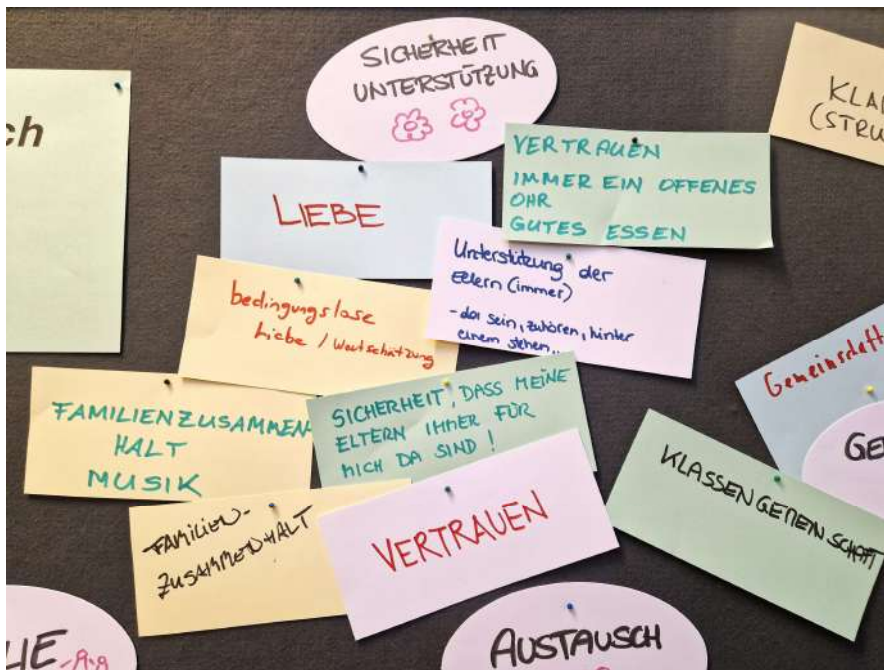 SICHERHEIT
UNTERSTÜTZUNG
ch
KLA
(STRU
VERTRAUEN
IMMER EIN OFFENES
OHR
GUTES ESSEN
LIEBE
Unterstützung der
Eltern (immer)
- da sein, zuhören, hinter
einem stehen,..
bedingungslose
Liebe / Wertschätzung
Gemeinschaft
FAMILIENZUSAMMEN-
HALT
MUSIK
SICHERHEIT, DASS MEINE
ELTERN IMMER FÜR
MICH DA SIND !
GE
KLASSENGEMEINSCHAFT
FAMILIEN-
ZUSAMMENHALT
VERTRAUEN
HE
AUSTAUSCH